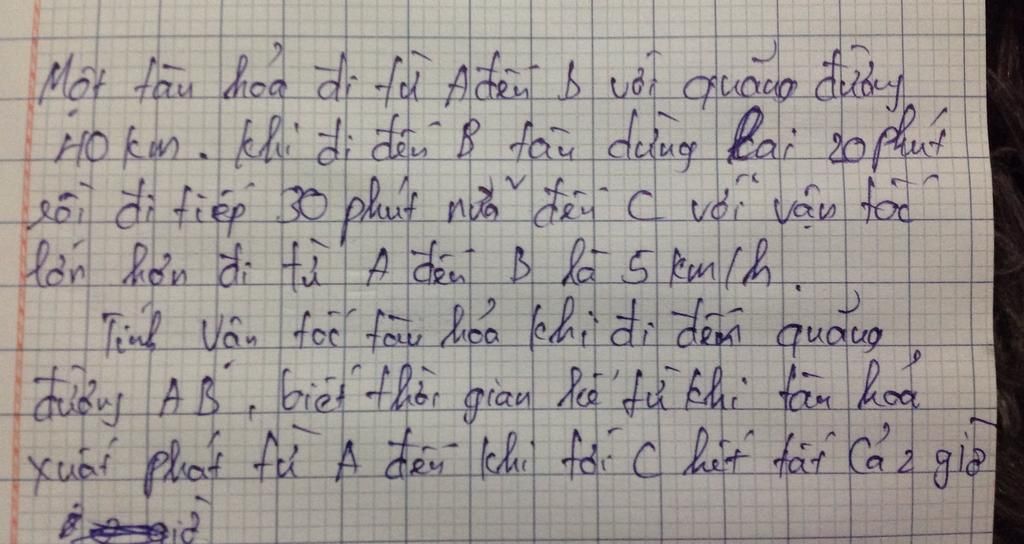 Một tàu hoả đi từ A đến B với quãng đường
40 km. Khi đi đến B tàu dừng lại 20 phút
rồi đi tiếp 30 phút nữa đến C với vận tốc
lớn hơn đi từ A đến B là 5 km/h.
Tính vận tốc tàu hỏa khi đi đến quãng
đường AB, biết thời gian kể từ khi tàu hoả
xuất phát từ A đến khi tới C hết tất cả 2 giờ